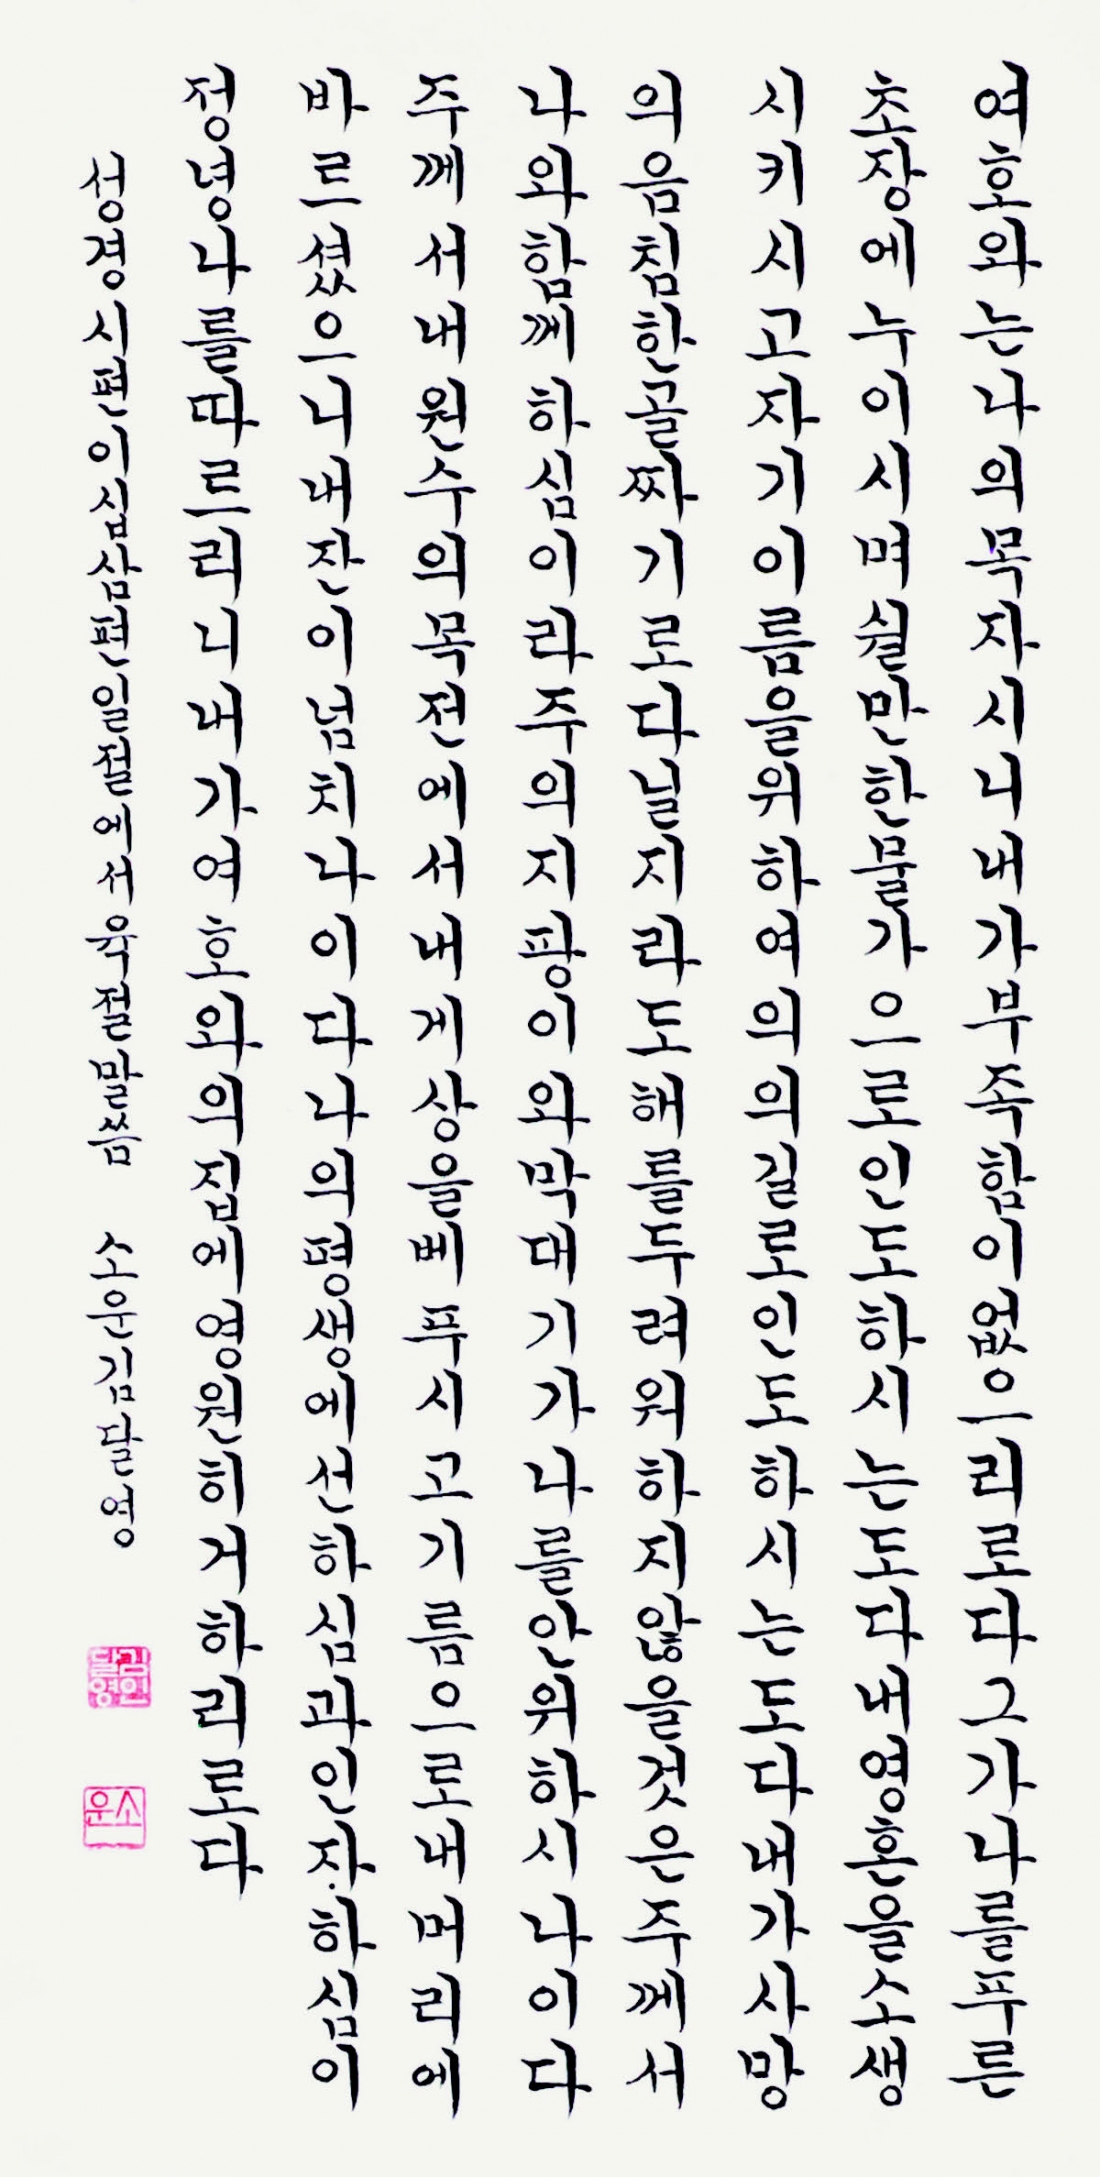 여호와는나의목자시니내가부족함이없으리로다그가나를푸른
초장에누이시며쉴만한물가으로인도하시는도다내영혼을소생
시키시고자기이름을위하여의의길로인도하시는도다내가사망
의음침한골짜기로다닐지라도해를두려워하지않을것은주께서
나와함께하심이라주의지팡이와막대기가나를안위하시나이다
주께서내원수의목전에서내게상을베푸시고기름으로내머리에
바르셨으니내잔이넘치나이다나의평생에선하심과인자하심이
정녕나를따르리니내가여호와의집에영원히거하리로다
성경시편이심삼편일절에서육절말씀 소운김달영
김인달영
소운